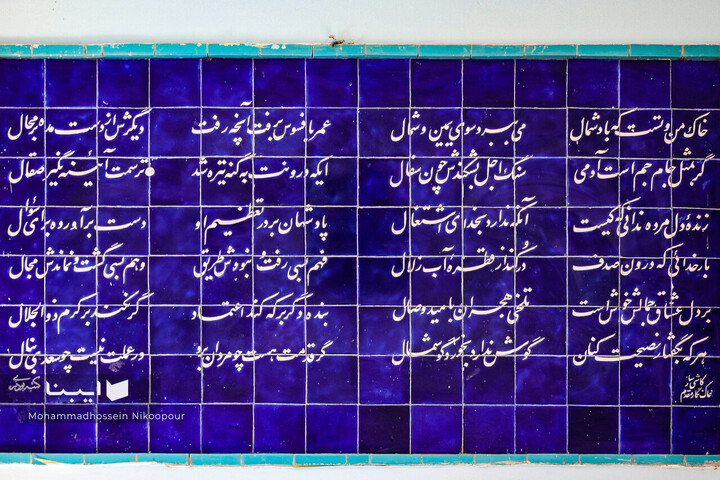 خاک من و تست که باد شمال می ببرد سوی یمین و شمال عمر بافسوس برفت آنچه رفت دیگرش از دست مده بر محال
گر بمثل جام جم است آدمی سنگ اجل بشکندش چون سفال ایکه درونت به گنه تیره شد ترسمت آئینه نگیرد صقال
زندهٔ دل مرده ندانی که کیست آنکه ندارد بخدای اشتغال پادشهان بر در تعظیم او دست برآورده برای سؤال
بار خدائی که درون صدف در کند از قطرهٔ آب زلال فهم بسی رفت و نبودش طریق وهم بسی گشت و نماندش مجال
بر دل عشاق جمالش خوش است تلخی هجران بامید وصال بنده دگر بر که کند اعتماد گر نکند بر کرم ذوالجلال
هر که بگفتار نصیحت کنان گوش ندارد بخورد گوشمال گر قدمت هست چو مردان برو ور عملت نیست چو سعدی بنال
کاشی ساز
خاک نگار مقدم
ایبنا
Mohammadhossein Nikoopour